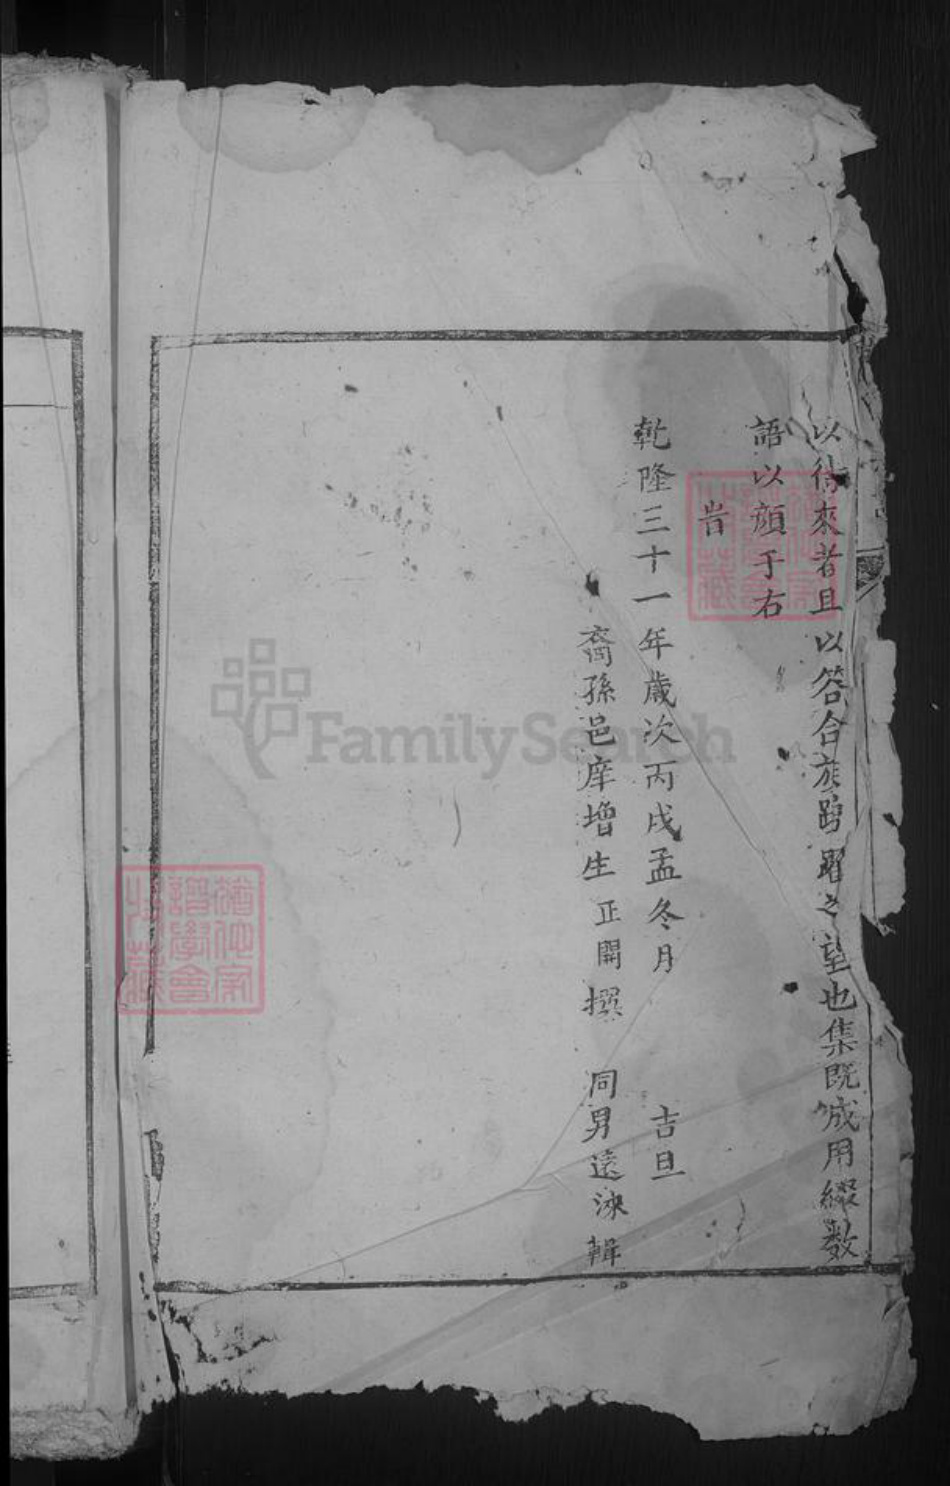 以待來者且以答合族踴躍之望也集既成用綴数
語以顔于右
旹
乾隆三十一年歲次丙戌孟冬月 吉旦
裔孫邑庠增生正開撰 同男遠涑輯
FamilySearch